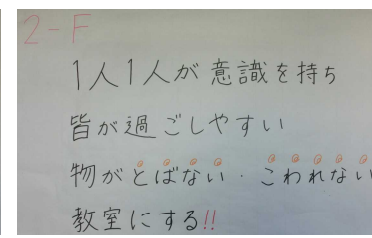 2-F
1人1人が意識を持ち
皆が過ごしやすい
物がとばない・こわれない
教室にする!!